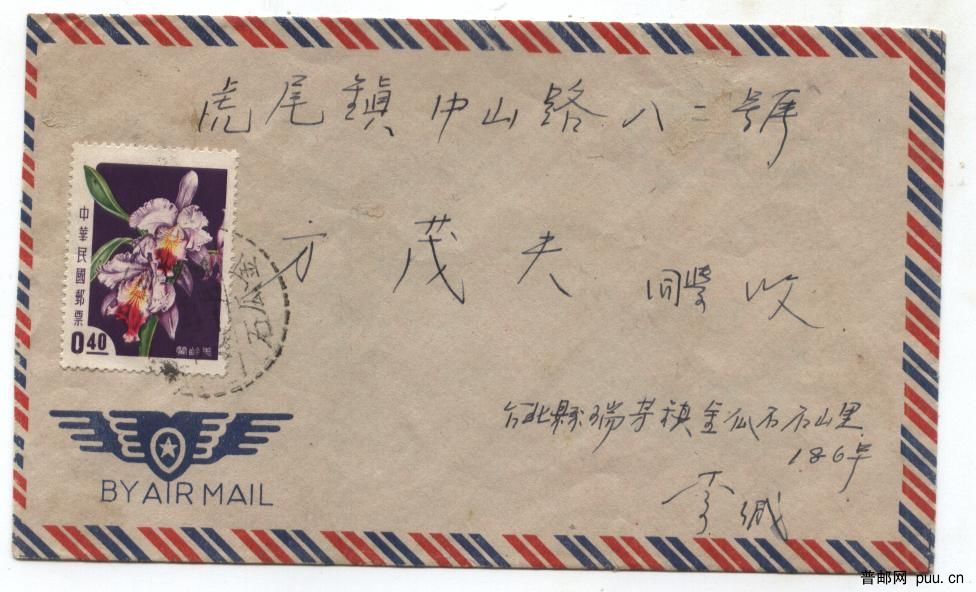 虎尾鎮中山路八二號
方茂夫 同學 收
台北縣瑞芳鎮金瓜石石山里
186号
李
中華民國郵票
0.40
金瓜石
BY AIR MAIL
普邮网 puu.cn